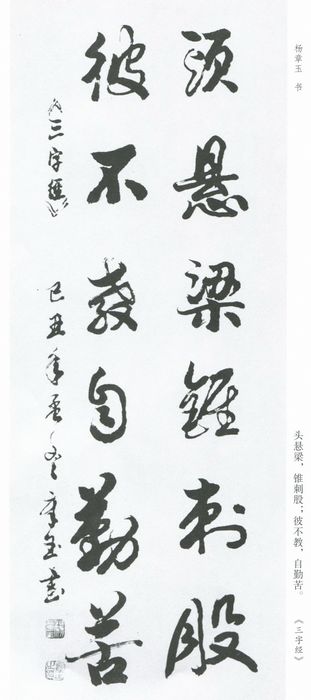 頭懸梁錐刺股
彼不教自勤苦
三字經
己丑年
章玉书
杨章玉 书
头悬梁，锥刺股；彼不教，自勤苦。
《三字经》